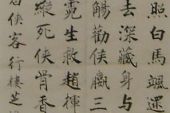 照白馬颯
去深藏身与
觴勸侯嬴三
霓生救趙揮
縱死俠骨香
白俠客行